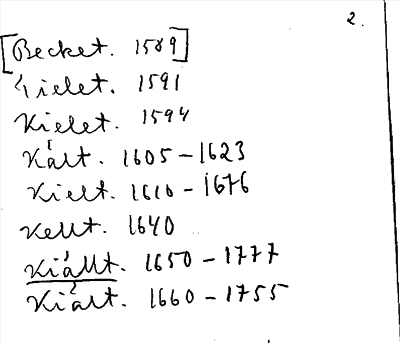 2.
[Becket. 1589]
Kielet. 1591
Kielet. 1594
Kált. 1605 – 1623
Kielt. 1610 – 1676
Kellt. 1640
Kiállt. 1650 – 1777
Kiált. 1660 – 1755